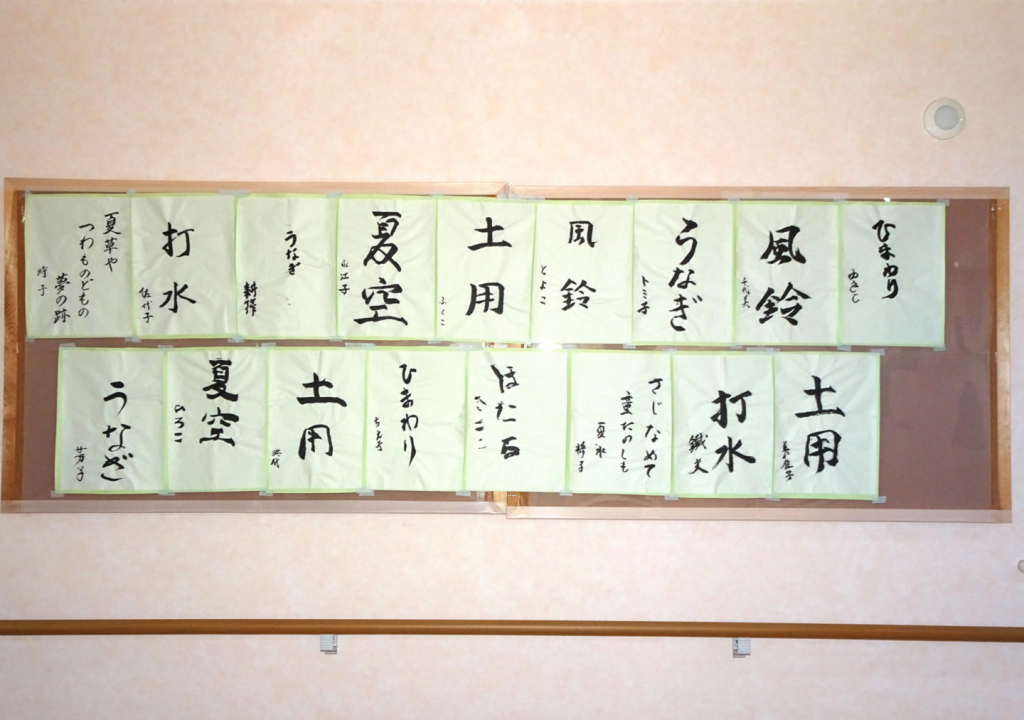 ひまわり
ゆきじ
風鈴
うなぎ
トミ子
風鈴
とよこ
土用
ふくこ
夏空
江子
うなぎ
耕作
打水
佐代子
夏草や
つわものどもの
夢の跡
時子
土用
打水
鐵丈
さじなめて
童たのしも
夏氷
静子
ほたる
きここ
ひまわり
ちえ子
土用
夏空
ひろこ
うなぎ
芳子